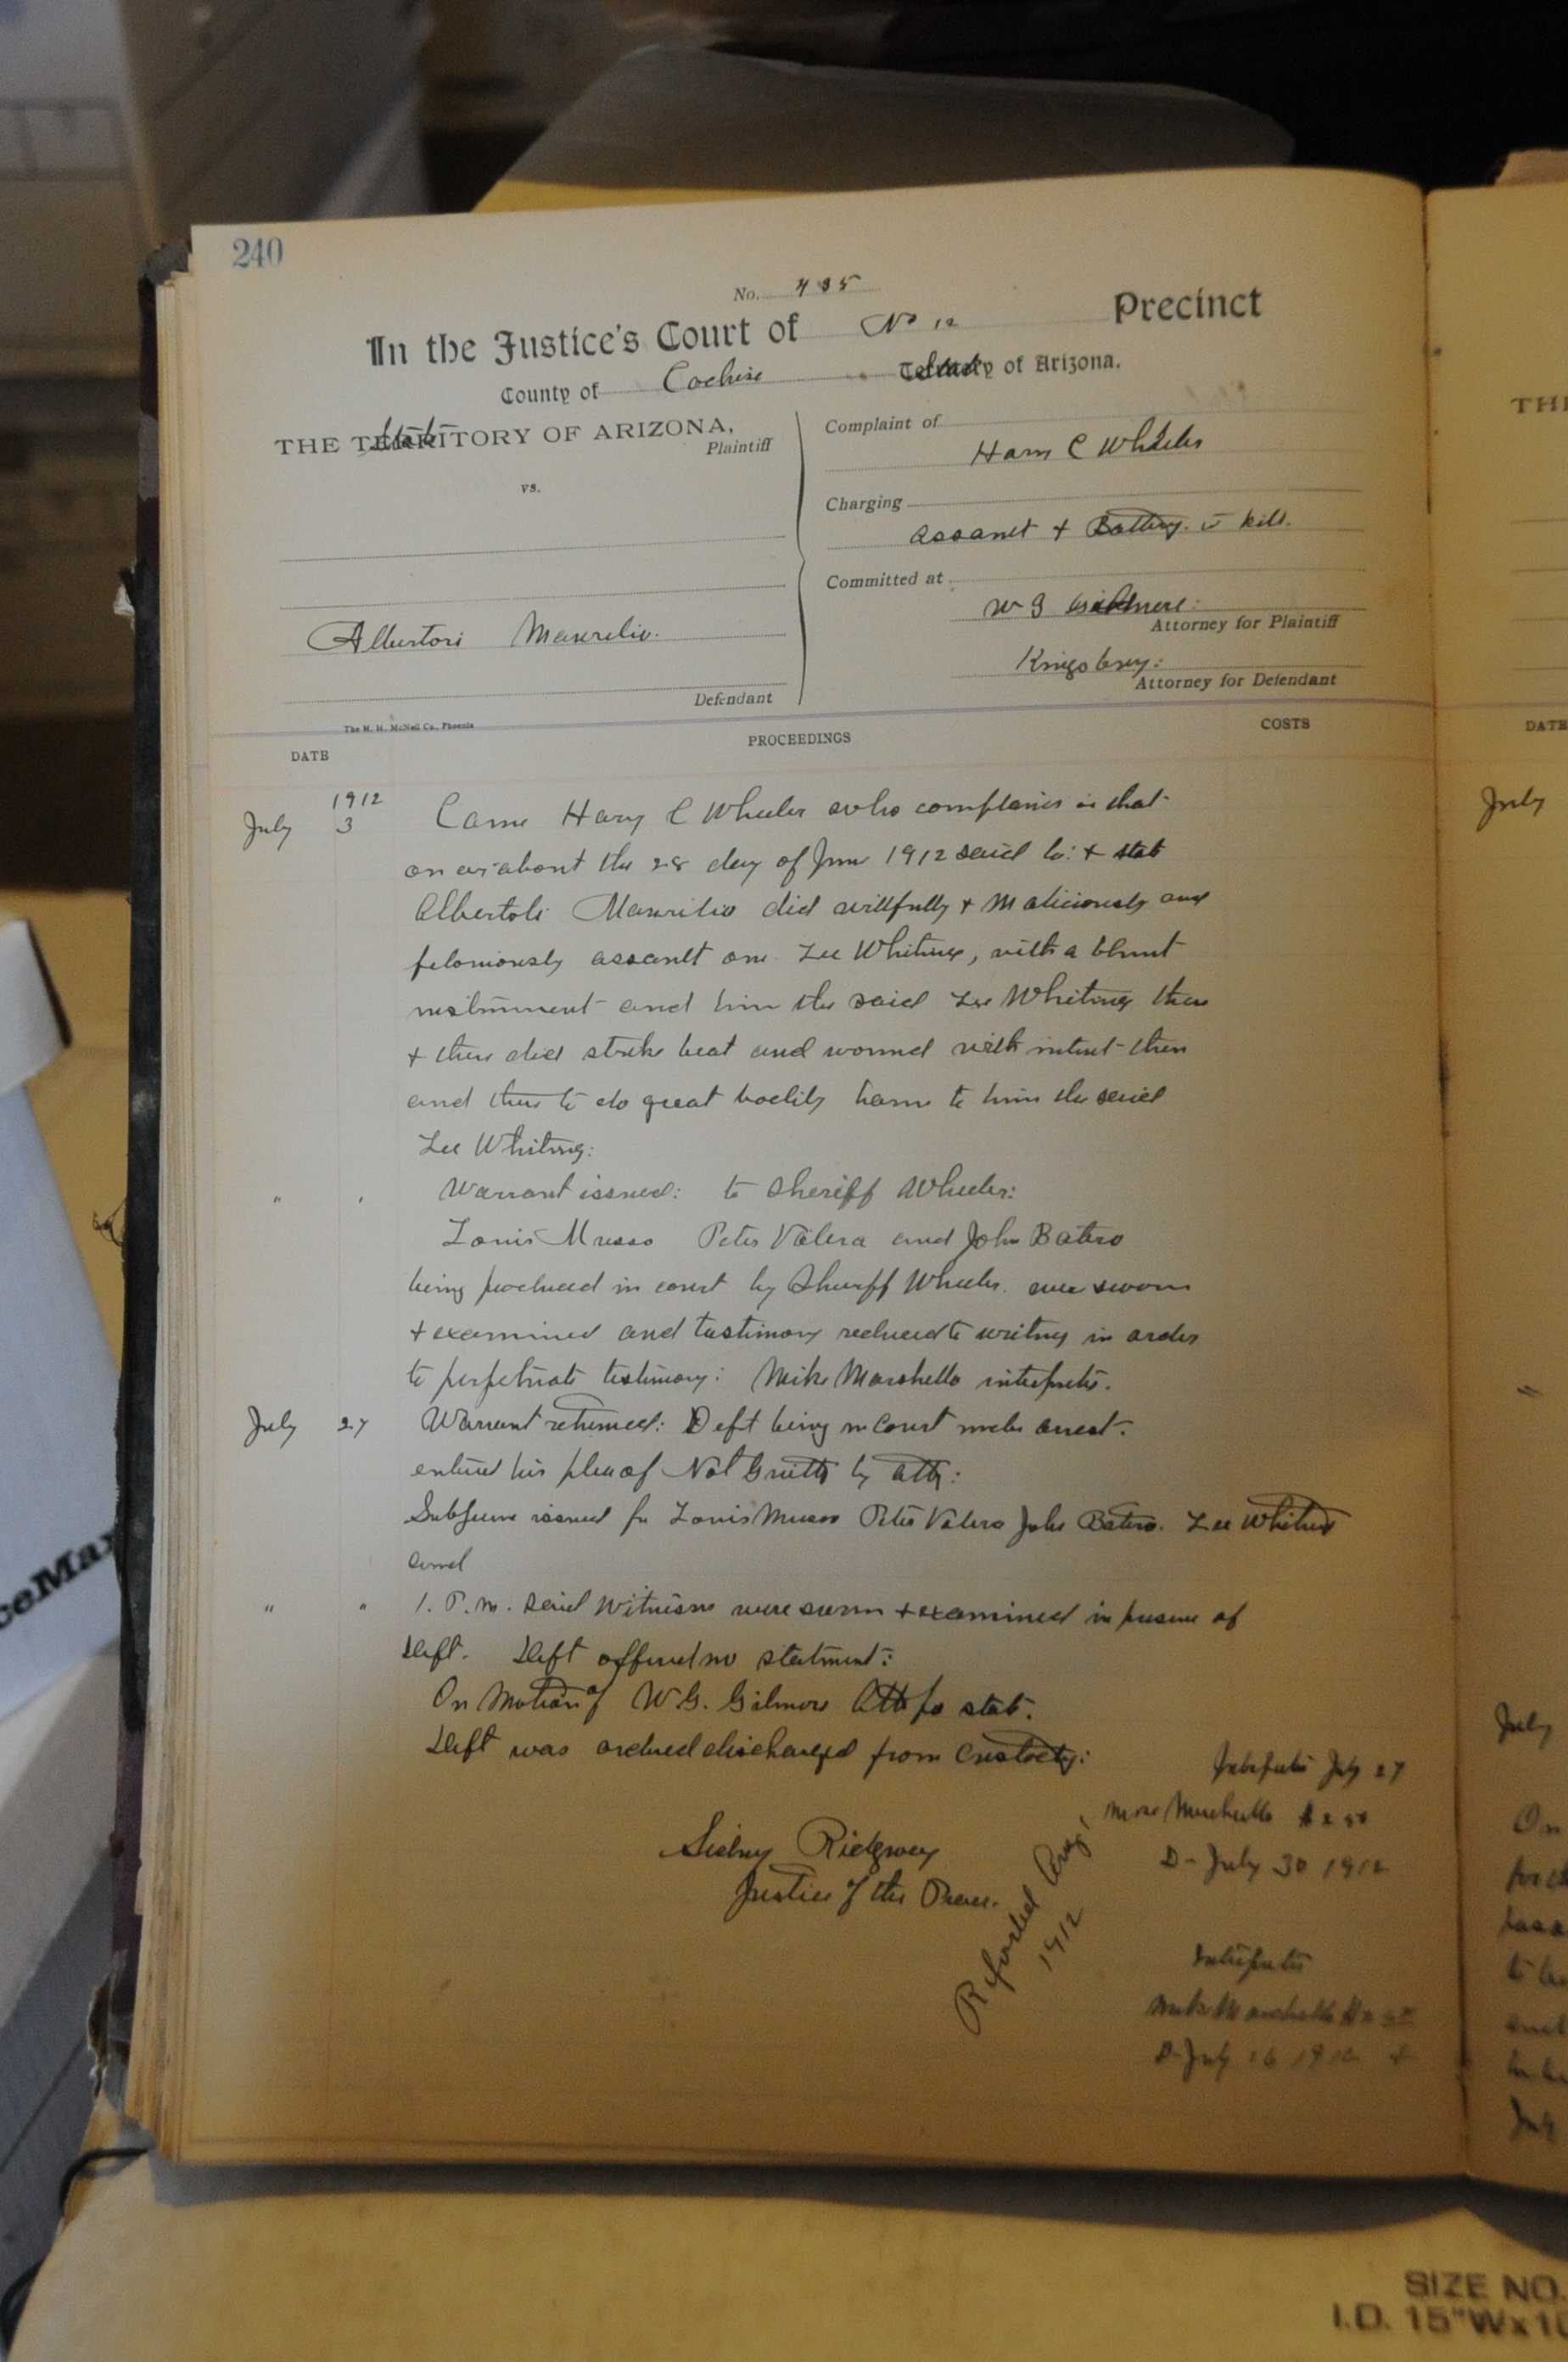 240
No. 435
In the Justice's Court of No 12 Precinct
County of Cochise State of Arizona.
THE TERRITORY OF ARIZONA,
State
Plaintiff
vs.
Albertori Maurilio.
Defendant
Complaint of
Harry C Wheeler
Charging
Assault & Battery. to kill.
Committed at
W G Gilmore:
Attorney for Plaintiff
Kingsbery:
Attorney for Defendant
The H. H. McNeil Co., Phoenix
DATE PROCEEDINGS COSTS
1912
July 3 Came Harry C Wheeler who complains that
on or about the 28 day of June 1912 said Co: & State
Albertoli Maurilio did willfully & Maliciously and
feloniously assault one Lee Whiting, with a blunt
instrument and him the said Lee Whiting then
& there did strike beat and wound with intent then
and there to do great bodily harm to him the said
Lee Whiting:
" " Warrant issued: to Sheriff Wheeler:
Louis Musso Peter Valera and John Batero
being produced in court by Sheriff Wheeler. were sworn
& examined and testimony reduced to writing in order
to perpetuate testimony: Mike Marshello interpreter.
July 27 Warrant returned: Deft being in Court under arrest.
entered his plea of Not Guilty by atty:
Subpena issued for Louis Musso Peter Valera John Batero. Lee Whiting
and
" " 1. P.m. said Witnesses were sworn & examined in presence of
Deft. Deft offered no statement:
On Motion of W. G. Gilmore Atty for state.
Deft was ordered discharged from Custody:
Sidney Ridgway
Justice of the Peace.
Reported Aug 1
1912
Interpreter July 27
D- July 30 1912
Interpreter
D- July 16 1912
THE
DATE
July
July
On
to
July
ceMax
SIZE NO.
I.D. 15"W x 10